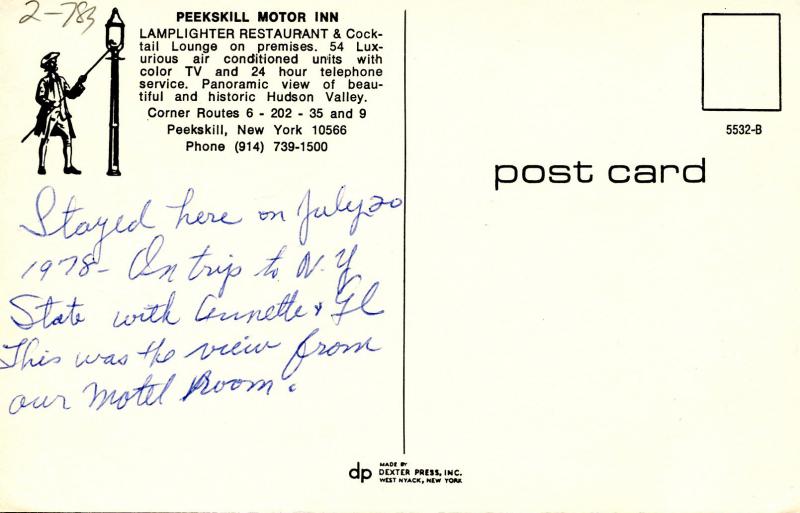 2-783
PEEKSKILL MOTOR INN
LAMPLIGHTER RESTAURANT & Cock-
tail Lounge on premises. 54 Lux-
urious air conditioned units with
color TV and 24 hour telephone
service. Panoramic view of beau-
tiful and historic Hudson Valley.
Corner Routes 6 - 202 - 35 and 9
Peekskill, New York 10566
Phone (914) 739-1500
5532-B
post card
Stayed here on July 20
1978 - On trip to N.Y
State with Annette &
This was the view from
our Motel Room.
dp MADE BY
DEXTER PRESS, INC.
WEST NYACK, NEW YORK